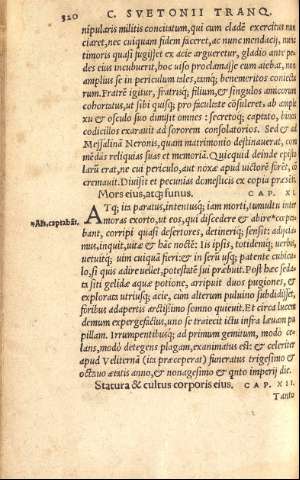 320 C. SVETONII TRANQ.
nipularis militis concitatum, qui cum cladē exercitus nun
ciaret, nec cuiquam fidem faceret, ac nunc mendacij, nunc
timoris quasi fugisset ex acie argueretur, gladio ante pe-
des eius incubuerit, hoc uiso proclamasse eum aiebat, non
amplius se in periculum tales, tamq; benemeritos coniectu
rum. Fratrē igitur, fratrisq; filium, & singulos amicorum
cohortatus, ut sibi quisq; pro facultate cōsuleret: ab ample
xu & osculo suo dimisit omnes: secretoq; captato, binos
codicillos exarauit ad sororem consolatorios. Sed & ad
Messalinā Neronis, quam matrimonio destinauerat, com
mēdās reliquias suas et memoriā. Quicquid deinde episto
larū erat, ne cui periculo, aut noxæ apud uictorē foret, cō
cremauit. Diuisit et pecunias domesticis ex copia præsenti.
Mors eius, atq; funus. CAP. XI.
*Als, captabāt. ATq; ita paratus, intentusq; iam morti, tumultu inter
moras exorto, ut eos, qui discedere & abire* cœpta-
bant, corripi quasi desertores, detineriq; sensit: adijcia-
mus, inquit, uitæ & hāc noctē: ijs ipsis, totidemq; uerbis,
uetuitq; uim cuiquā fieri: & in serū usq; patente cubicu-
lo, si quis adire uellet, potestatē sui præbuit. Post hæc seda-
ta siti gelidæ aquæ potione, arripuit duos pugiones, &
explorata utriusq; acie, cùm alterum puluino subdidisset,
foribus adapertis arctissimo somno quieuit. Et circa lucem
demum expergefactus, uno se traiecit ictu infra læuam pa
pillam. Irrumpentibusq; ad primum gemitum, modò ce-
lans, modò detegens plagam, exanimatus est: & celeriter
apud Veliternā (ita præceperat) funeratus trigesimo &
octauo ætatis anno, & nonagesimo & qnto imperij die.
Statura & cultus corporis eius. CAP. XII.
Tanto